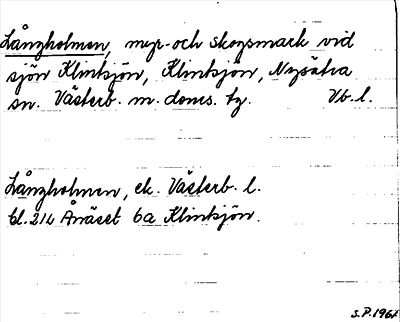 Långholmen, myr- och skogsmark vid
sjön Klintsjön, Klintsjön, Nysätra
sn. Västerb. m. doms. tg. Vb. l.
Långholmen, ek. Västerb. l.
bl. 214 Ånäset 6a Klintsjön.
S.P. 1961